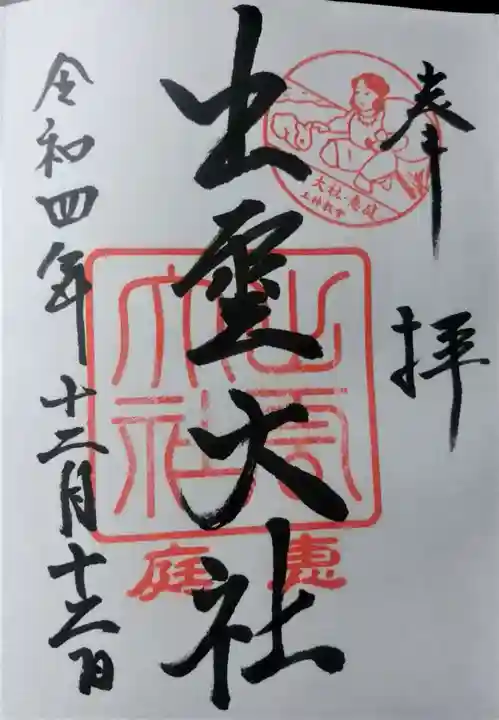 奉拝
出雲大社
令和四年十二月十二日
大社・恵庭
出雲
大社
惠庭